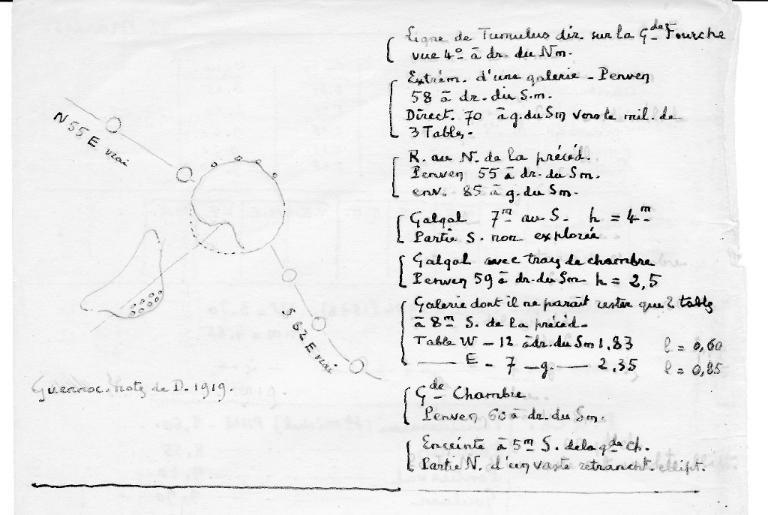 N 55 E vrai
S 62 E vrai
notes de D. 1919.
Ligne de Tumulus dir. sur la Gde Fourche
vue 4° à dr. du Nm.
Extrém. d'une galerie - Penven
58 à dr. du S.m.
Direct. 70 à g. du Sm vers le mil. de
3 Tables.
R. au N. de la précéd.
Penven 55 à dr. du Sm.
env. 85 à g. du Sm.
Galgal 7m au S. h = 4m
Partie S. non explorée
Galgal avec traces de chambre
Penven 59 à dr. du Sm h = 2,5
Galerie dont il ne parait rester que 2 tables
à 8m S. de la précéd.
Table W - 12 à dr. du Sm 1.83 l = 0,60
—— E - 7 - g. —— 2.35 l = 0,85
Gde Chambre
Penven 60 à dr. du Sm.
Enceinte à 5m S. de la gde Ch.
Partie N. d'un vaste retrancht. ellipt.